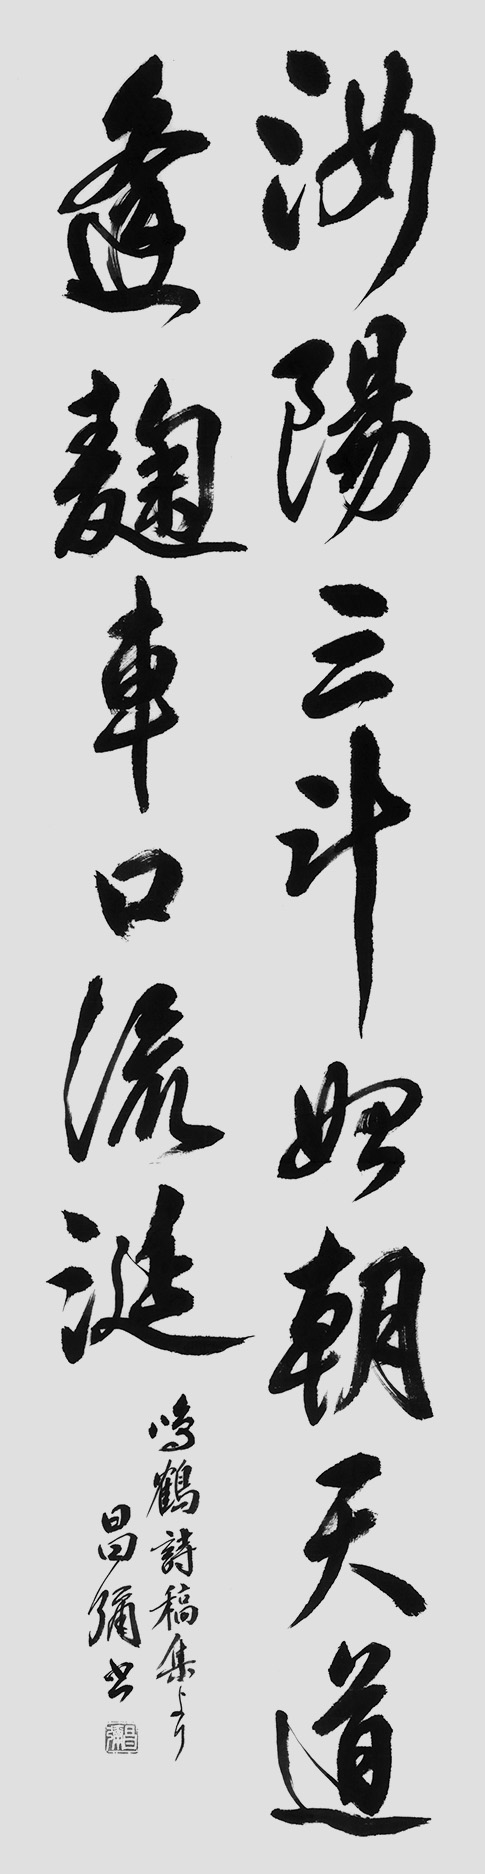 汝陽三斗始朝天道
逢麹車口流涎
鳴鶴詩稿集より
昌彌書